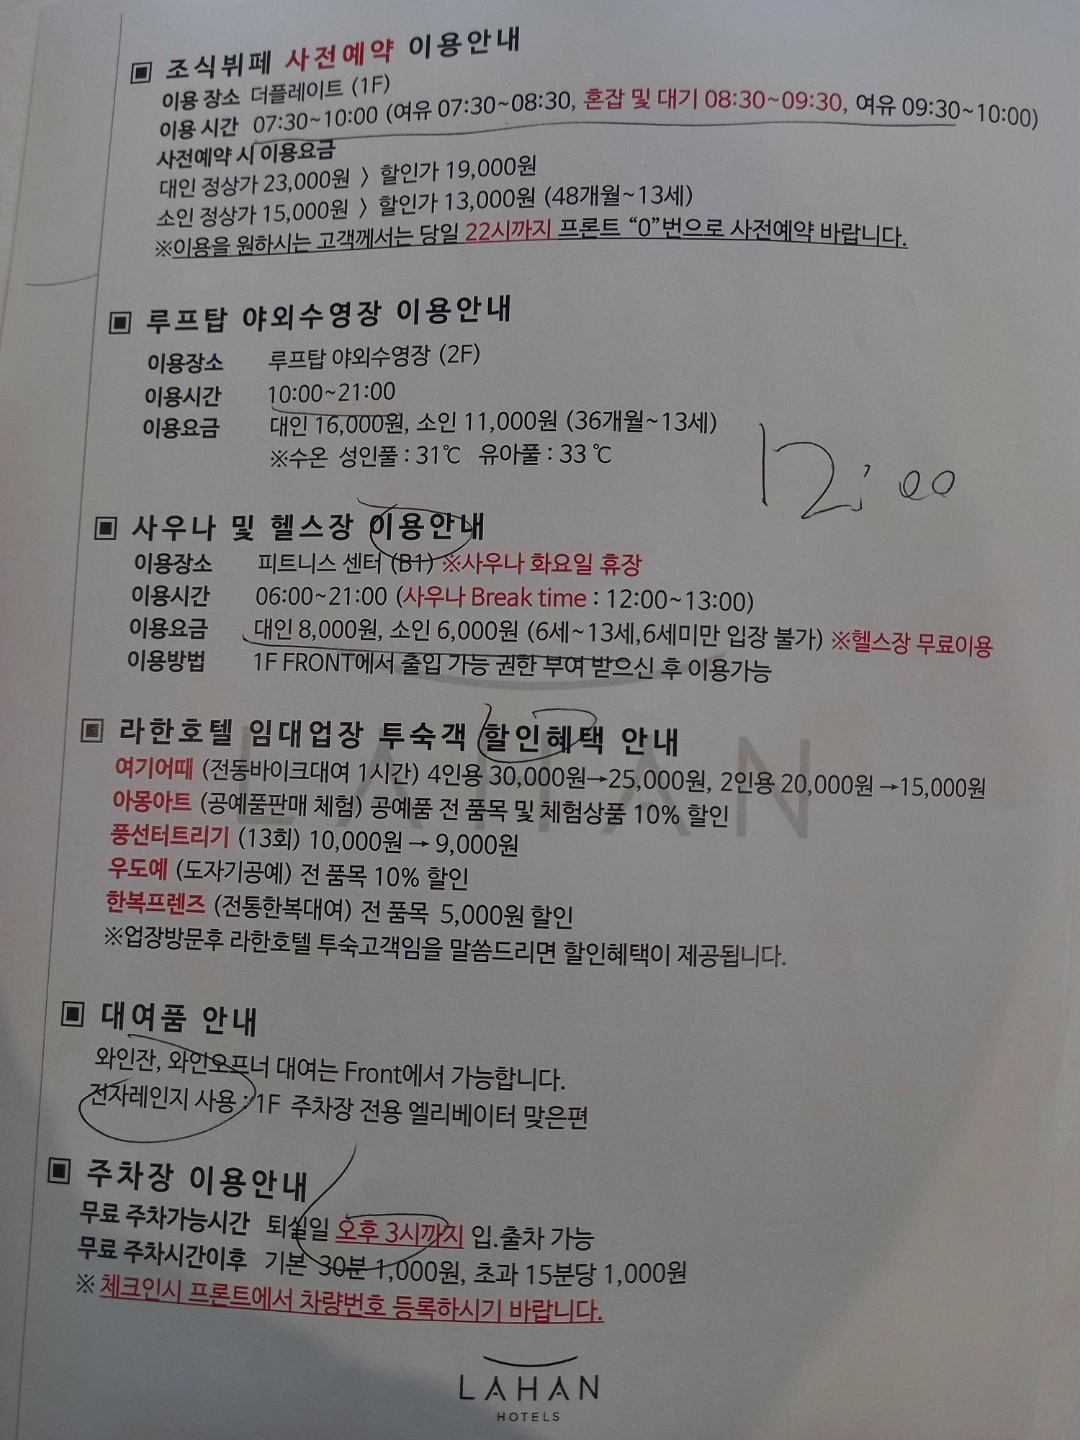 ▣ 조식뷔페 사전예약 이용안내
이용 장소 더플레이트 (1F)
이용 시간 07:30~10:00 (여유 07:30~08:30, 혼잡 및 대기 08:30~09:30, 여유 09:30~10:00)
사전예약 시 이용요금
대인 정상가 23,000원 〉 할인가 19,000원
소인 정상가 15,000원 〉 할인가 13,000원 (48개월~13세)
※이용을 원하시는 고객께서는 당일 22시까지 프론트 “0”번으로 사전예약 바랍니다.
▣ 루프탑 야외수영장 이용안내
이용장소 루프탑 야외수영장 (2F)
이용시간 10:00~21:00
이용요금 대인 16,000원, 소인 11,000원 (36개월~13세)
※수온 성인풀 : 31℃ 유아풀 : 33 ℃
12:00
▣ 사우나 및 헬스장 이용안내
이용장소 피트니스 센터 (B1) ※사우나 화요일 휴장
이용시간 06:00~21:00 (사우나 Break time : 12:00~13:00)
이용요금 대인 8,000원, 소인 6,000원 (6세~13세,6세미만 입장 불가) ※헬스장 무료이용
이용방법 1F FRONT에서 출입 가능 권한 부여 받으신 후 이용가능
▣ 라한호텔 임대업장 투숙객 할인혜택 안내
여기어때 (전동바이크대여 1시간) 4인용 30,000원→25,000원, 2인용 20,000원→15,000원
아몽아트 (공예품판매 체험) 공예품 전 품목 및 체험상품 10% 할인
풍선터트리기 (13회) 10,000원 → 9,000원
우도예 (도자기공예) 전 품목 10% 할인
한복프렌즈 (전통한복대여) 전 품목 5,000원 할인
※업장방문후 라한호텔 투숙고객임을 말씀드리면 할인혜택이 제공됩니다.
LAHAN
▣ 대여품 안내
와인잔, 와인오프너 대여는 Front에서 가능합니다.
전자레인지 사용 : 1F 주차장 전용 엘리베이터 맞은편
▣ 주차장 이용안내
무료 주차가능시간 퇴실일 오후 3시까지 입.출차 가능
무료 주차시간이후 기본 30분 1,000원, 초과 15분당 1,000원
※체크인시 프론트에서 차량번호 등록하시기 바랍니다.
LAHAN
HOTELS